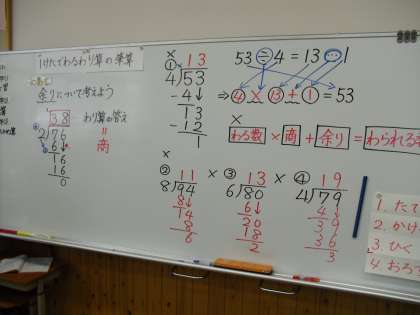 1けたでわるわり算の筆算
めあて
余りについて考えよう
38
2)76
6
16
16
0
わり算の答え
=
商
×
① 13
4)53
4
13
12
1
53÷4=13…1
⇒ 4×13+1=53
×
わる数×商+余り=わられる
×
② 11
8)94
8
14
8
6
×
③ 13
6)80
6
20
18
2
×
④ 19
4)79
4
39
36
3
1. たて
2. かけ
3. ひく
4 おろ